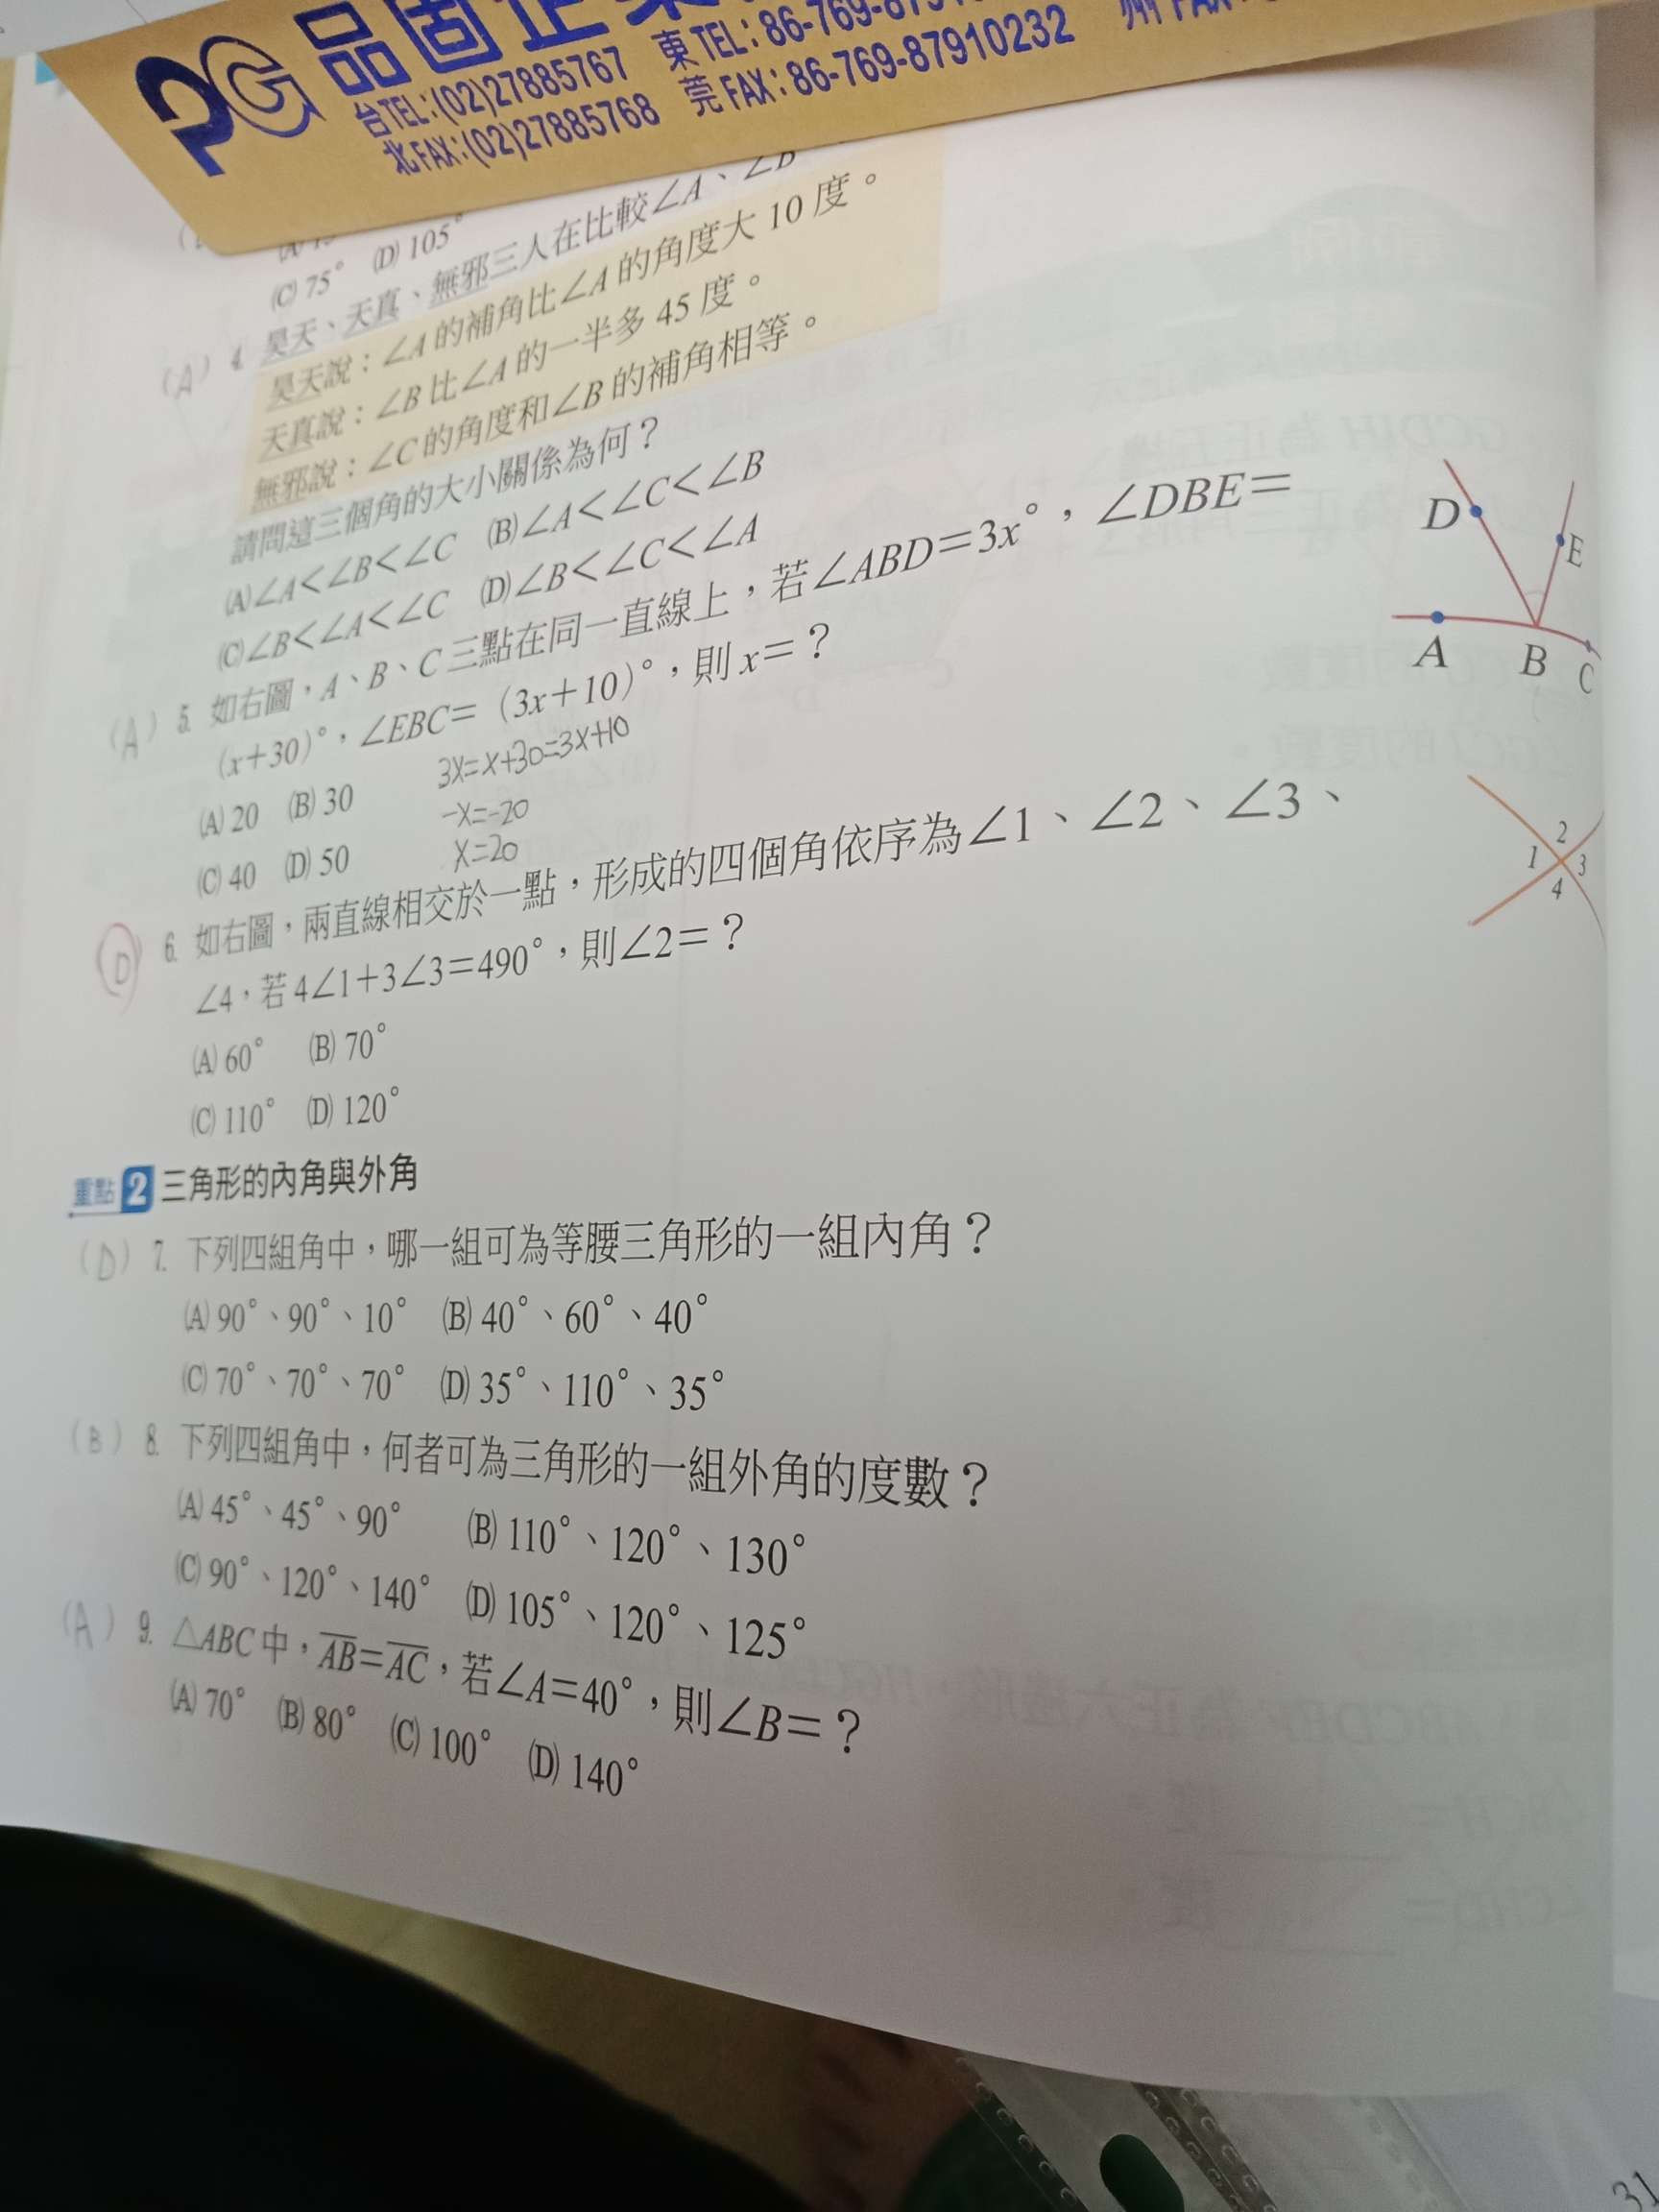 品固企業
台TEL:(02)27885767 東TEL:86-769-
北FAX:(02)27885768 莞FAX:86-769-87910232
(C) 75° (D) 105°
(A) 4. 昊天、天真、無邪三人在比較∠A、∠B
昊天說：∠A的補角比∠A的角度大 10 度。
天真說：∠B比∠A的一半多 45 度。
無邪說：∠C的角度和∠B的補角相等。
請問這三個角的大小關係為何？
(A)∠A<∠B<∠C (B)∠A<∠C<∠B
(C)∠B<∠A<∠C (D)∠B<∠C<∠A
(A) 5. 如右圖，A、B、C三點在同一直線上，若∠ABD=3x°，∠DBE=
(x+30)°，∠EBC=(3x+10)°，則x=？
(A) 20 (B) 30
(C) 40 (D) 50
3X=X+30=3X+10
-X=-20
X=20
D
E
A B C
(D) 6. 如右圖，兩直線相交於一點，形成的四個角依序為∠1、∠2、∠3、
∠4，若4∠1+3∠3=490°，則∠2=？
(A) 60° (B) 70°
(C) 110° (D) 120°
2
1 3
4
重點 2 三角形的內角與外角
(D) 7. 下列四組角中，哪一組可為等腰三角形的一組內角？
(A) 90°、90°、10° (B) 40°、60°、40°
(C) 70°、70°、70° (D) 35°、110°、35°
(B) 8. 下列四組角中，何者可為三角形的一組外角的度數？
(A) 45°、45°、90° (B) 110°、120°、130°
(C) 90°、120°、140° (D) 105°、120°、125°
(A) 9. △ABC中，AB=AC，若∠A=40°，則∠B=？
(A) 70° (B) 80° (C) 100° (D) 140°
31